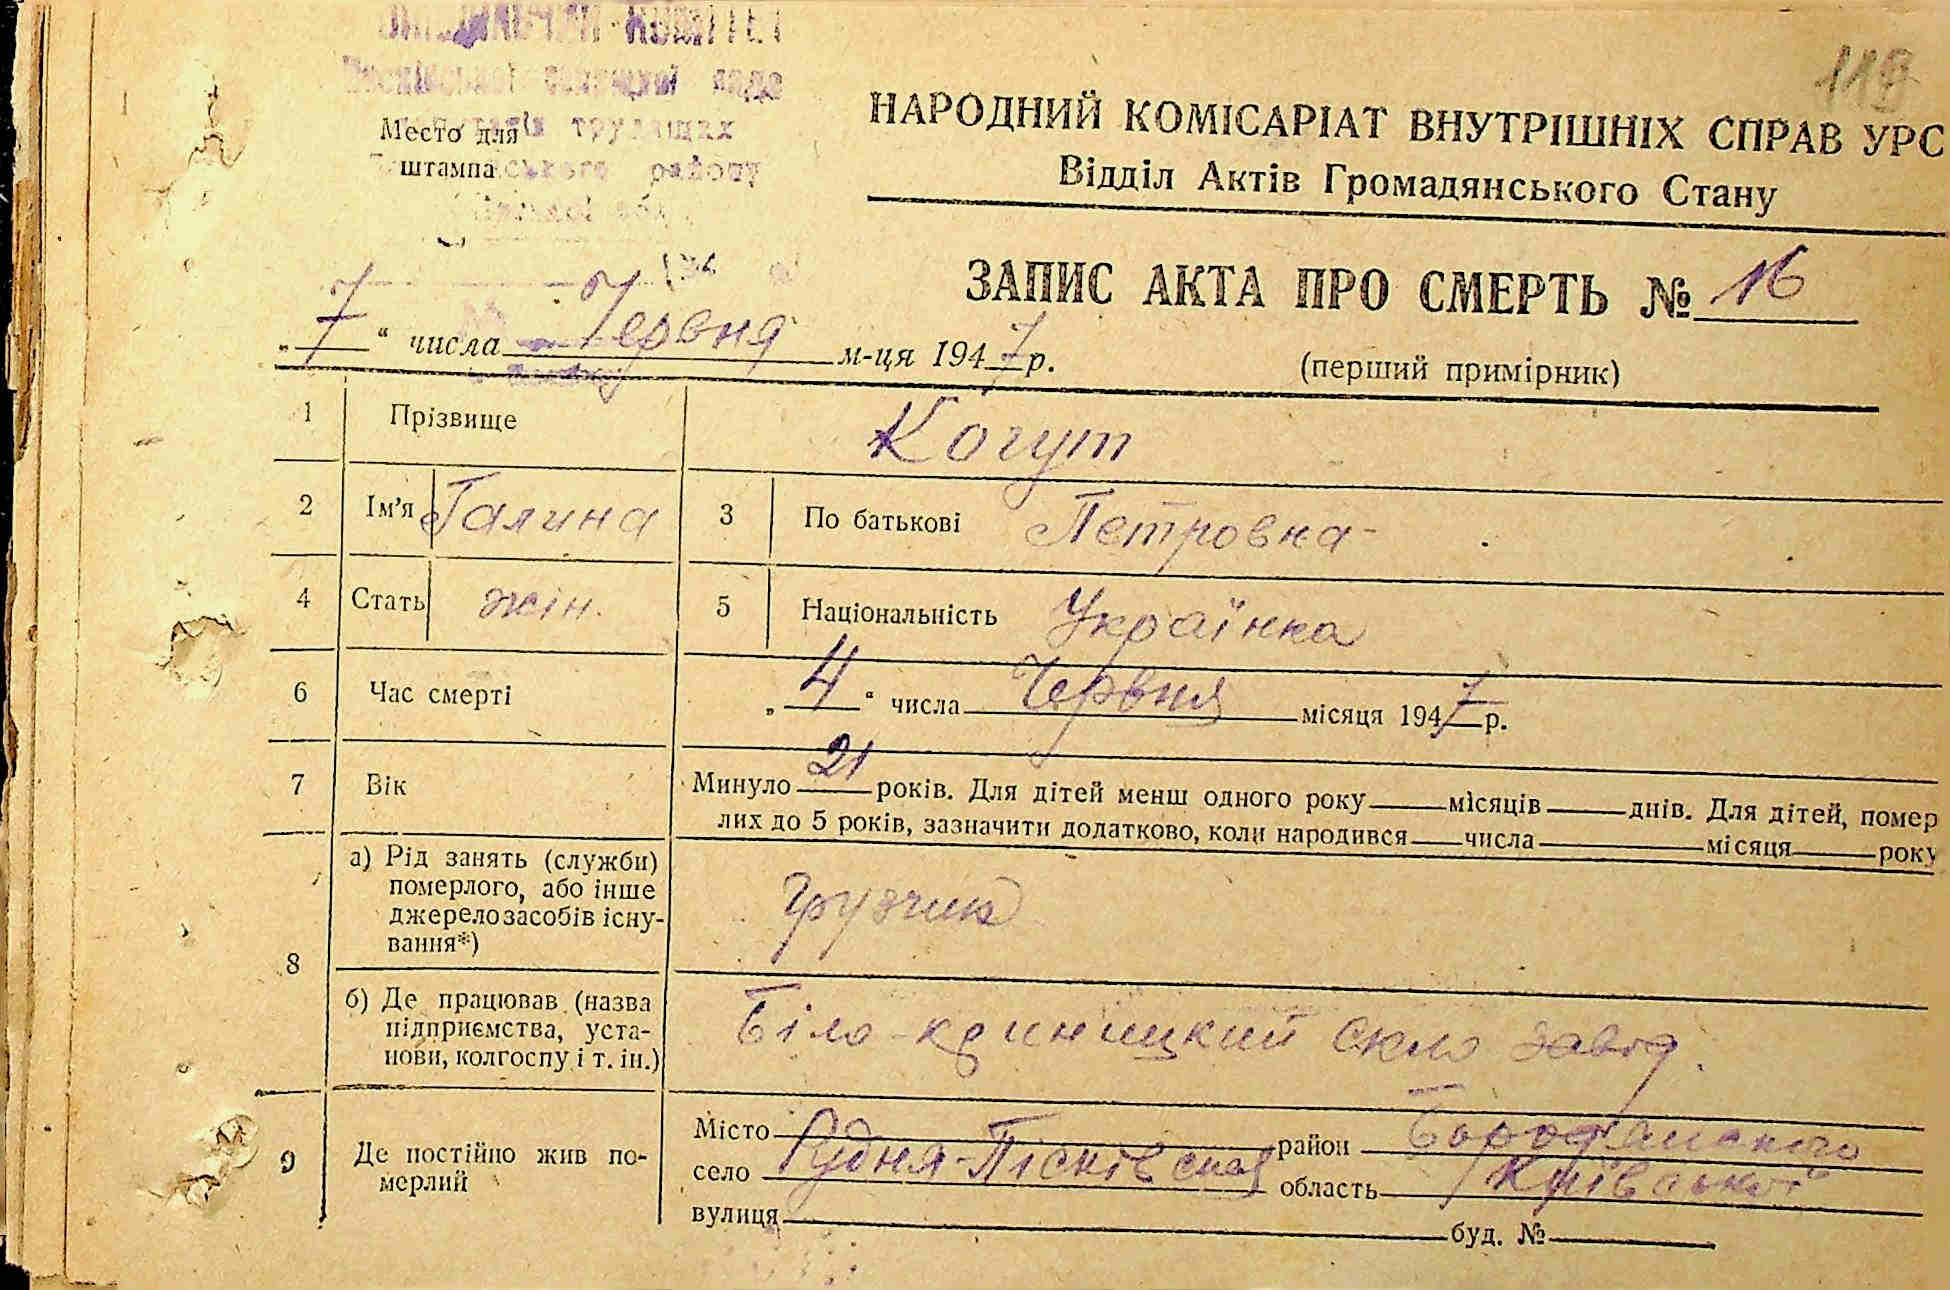 119
КОМІТЕТ
Пісківської селищної ради
депутатів трудящих
району
Место для
штампа
НАРОДНИЙ КОМІСАРІАТ ВНУТРІШНІХ СПРАВ УРС
Відділ Актів Громадянського Стану
ЗАПИС АКТА ПРО СМЕРТЬ № 16
„ 7 “ числа Червня м-ця 1947 р.
(перший примірник)
1 Прізвище Когут
2 Ім’я Галина 3 По батькові Петровна
4 Стать жін. 5 Національність Українка
6 Час смерті „ 4 “ числа Червня місяця 1947 р.
7 Вік Минуло 21 років. Для дітей менш одного року місяців днів. Для дітей, помер
лих до 5 років, зазначити додатково, коли народився числа місяця року
8 а) Рід занять (служби)
померлого, або інше
джерело засобів існу-
вання*)
Грузчик
б) Де працював (назва
підприємства, уста-
нови, колгоспу і т. ін.)
Біло-криницкий скло завод.
9 Де постійно жив по-
мерлий
Місто район Бородянского
село Рудня-Пісківская область Київської
вулиця буд. №